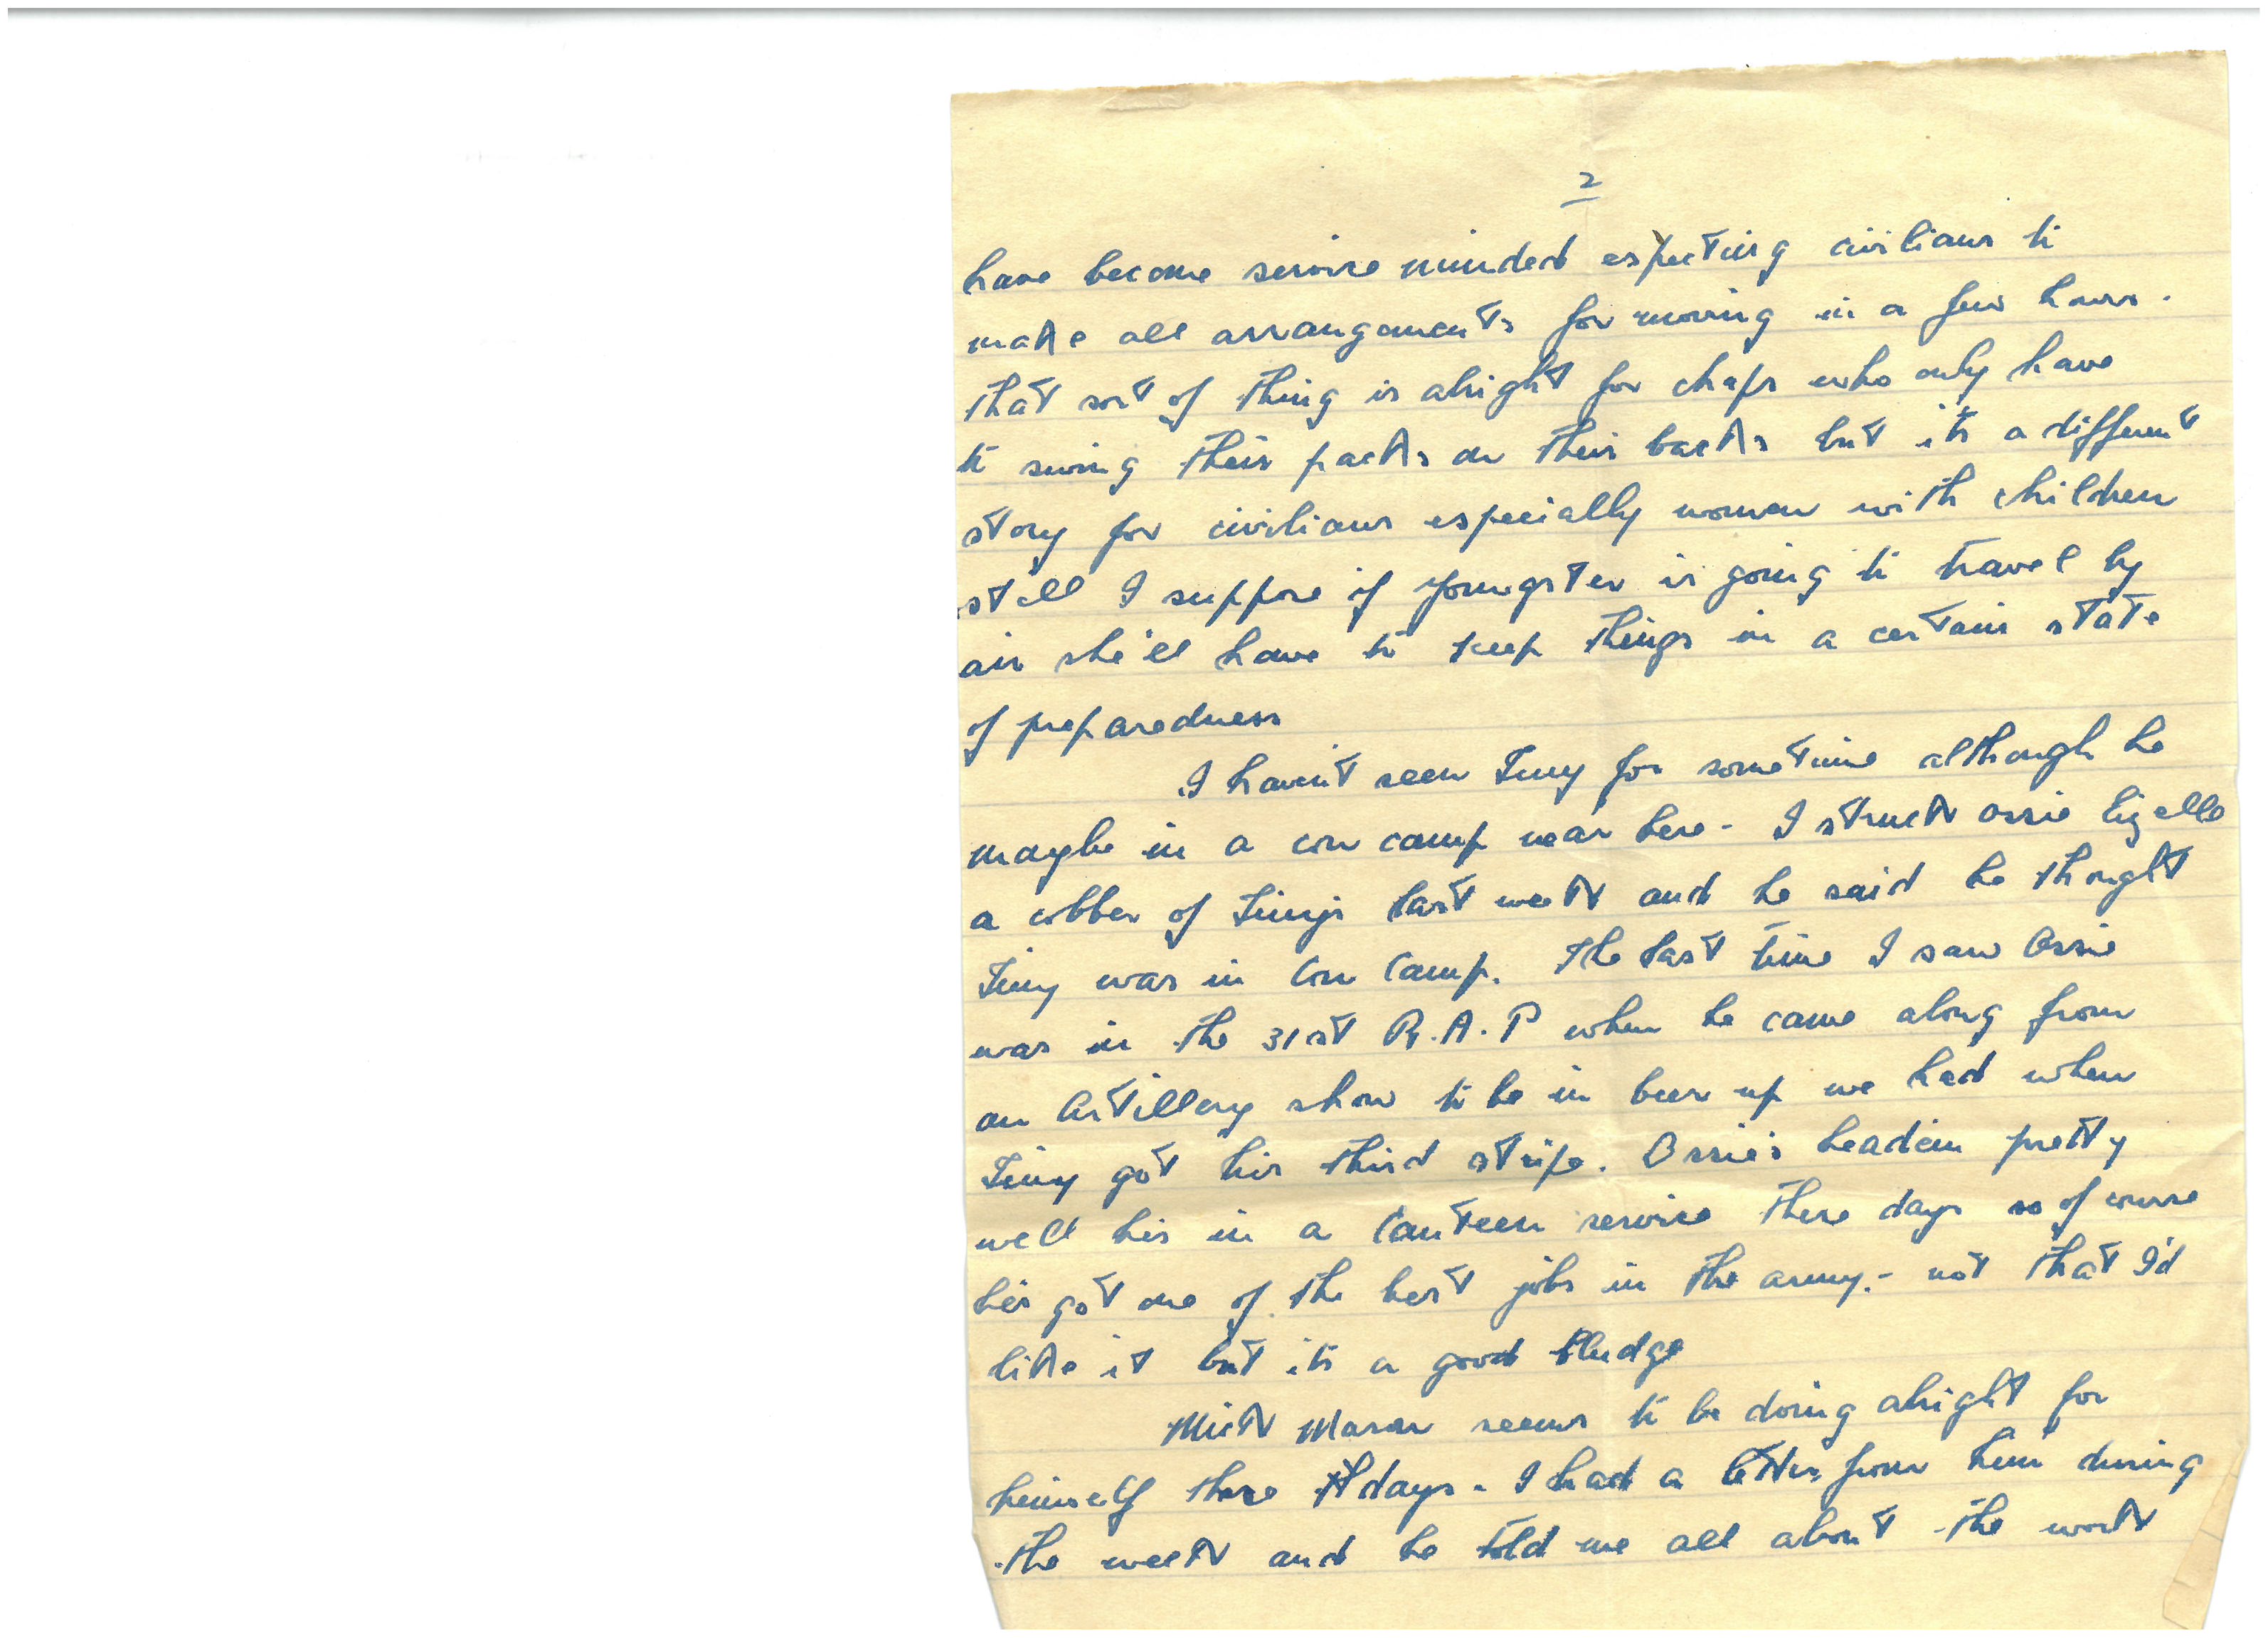 2
have become service minded expecting civilians to
make all arrangements for moving in a few hours.
That sort of thing is alright for chaps who only have
to swing their packs on their backs but it's a different
story for civilians especially women with children
still I suppose if youngster is going to travel by
air she'll have to keep things in a certain state
of preparedness
I haven't seen Tiny for sometime although he
maybe in a con camp near here - I struck Ossie
a cobber of Tiny's last week and he said he thought
Tiny was in Con Camp. The last time I saw Ossie
was in the 31st R.A.P when he came along from
an Artillery show to be in beer up we had when
Tiny got his third stripe. Ossie's headin pretty
well his in a Canteen service these days so of course
he's got one of the best jobs in the army - not that I'd
like it but it's a good bludge
Mick seems to be doing alright for
himself these days - I had a letter from him during
the week and he told me all about the work